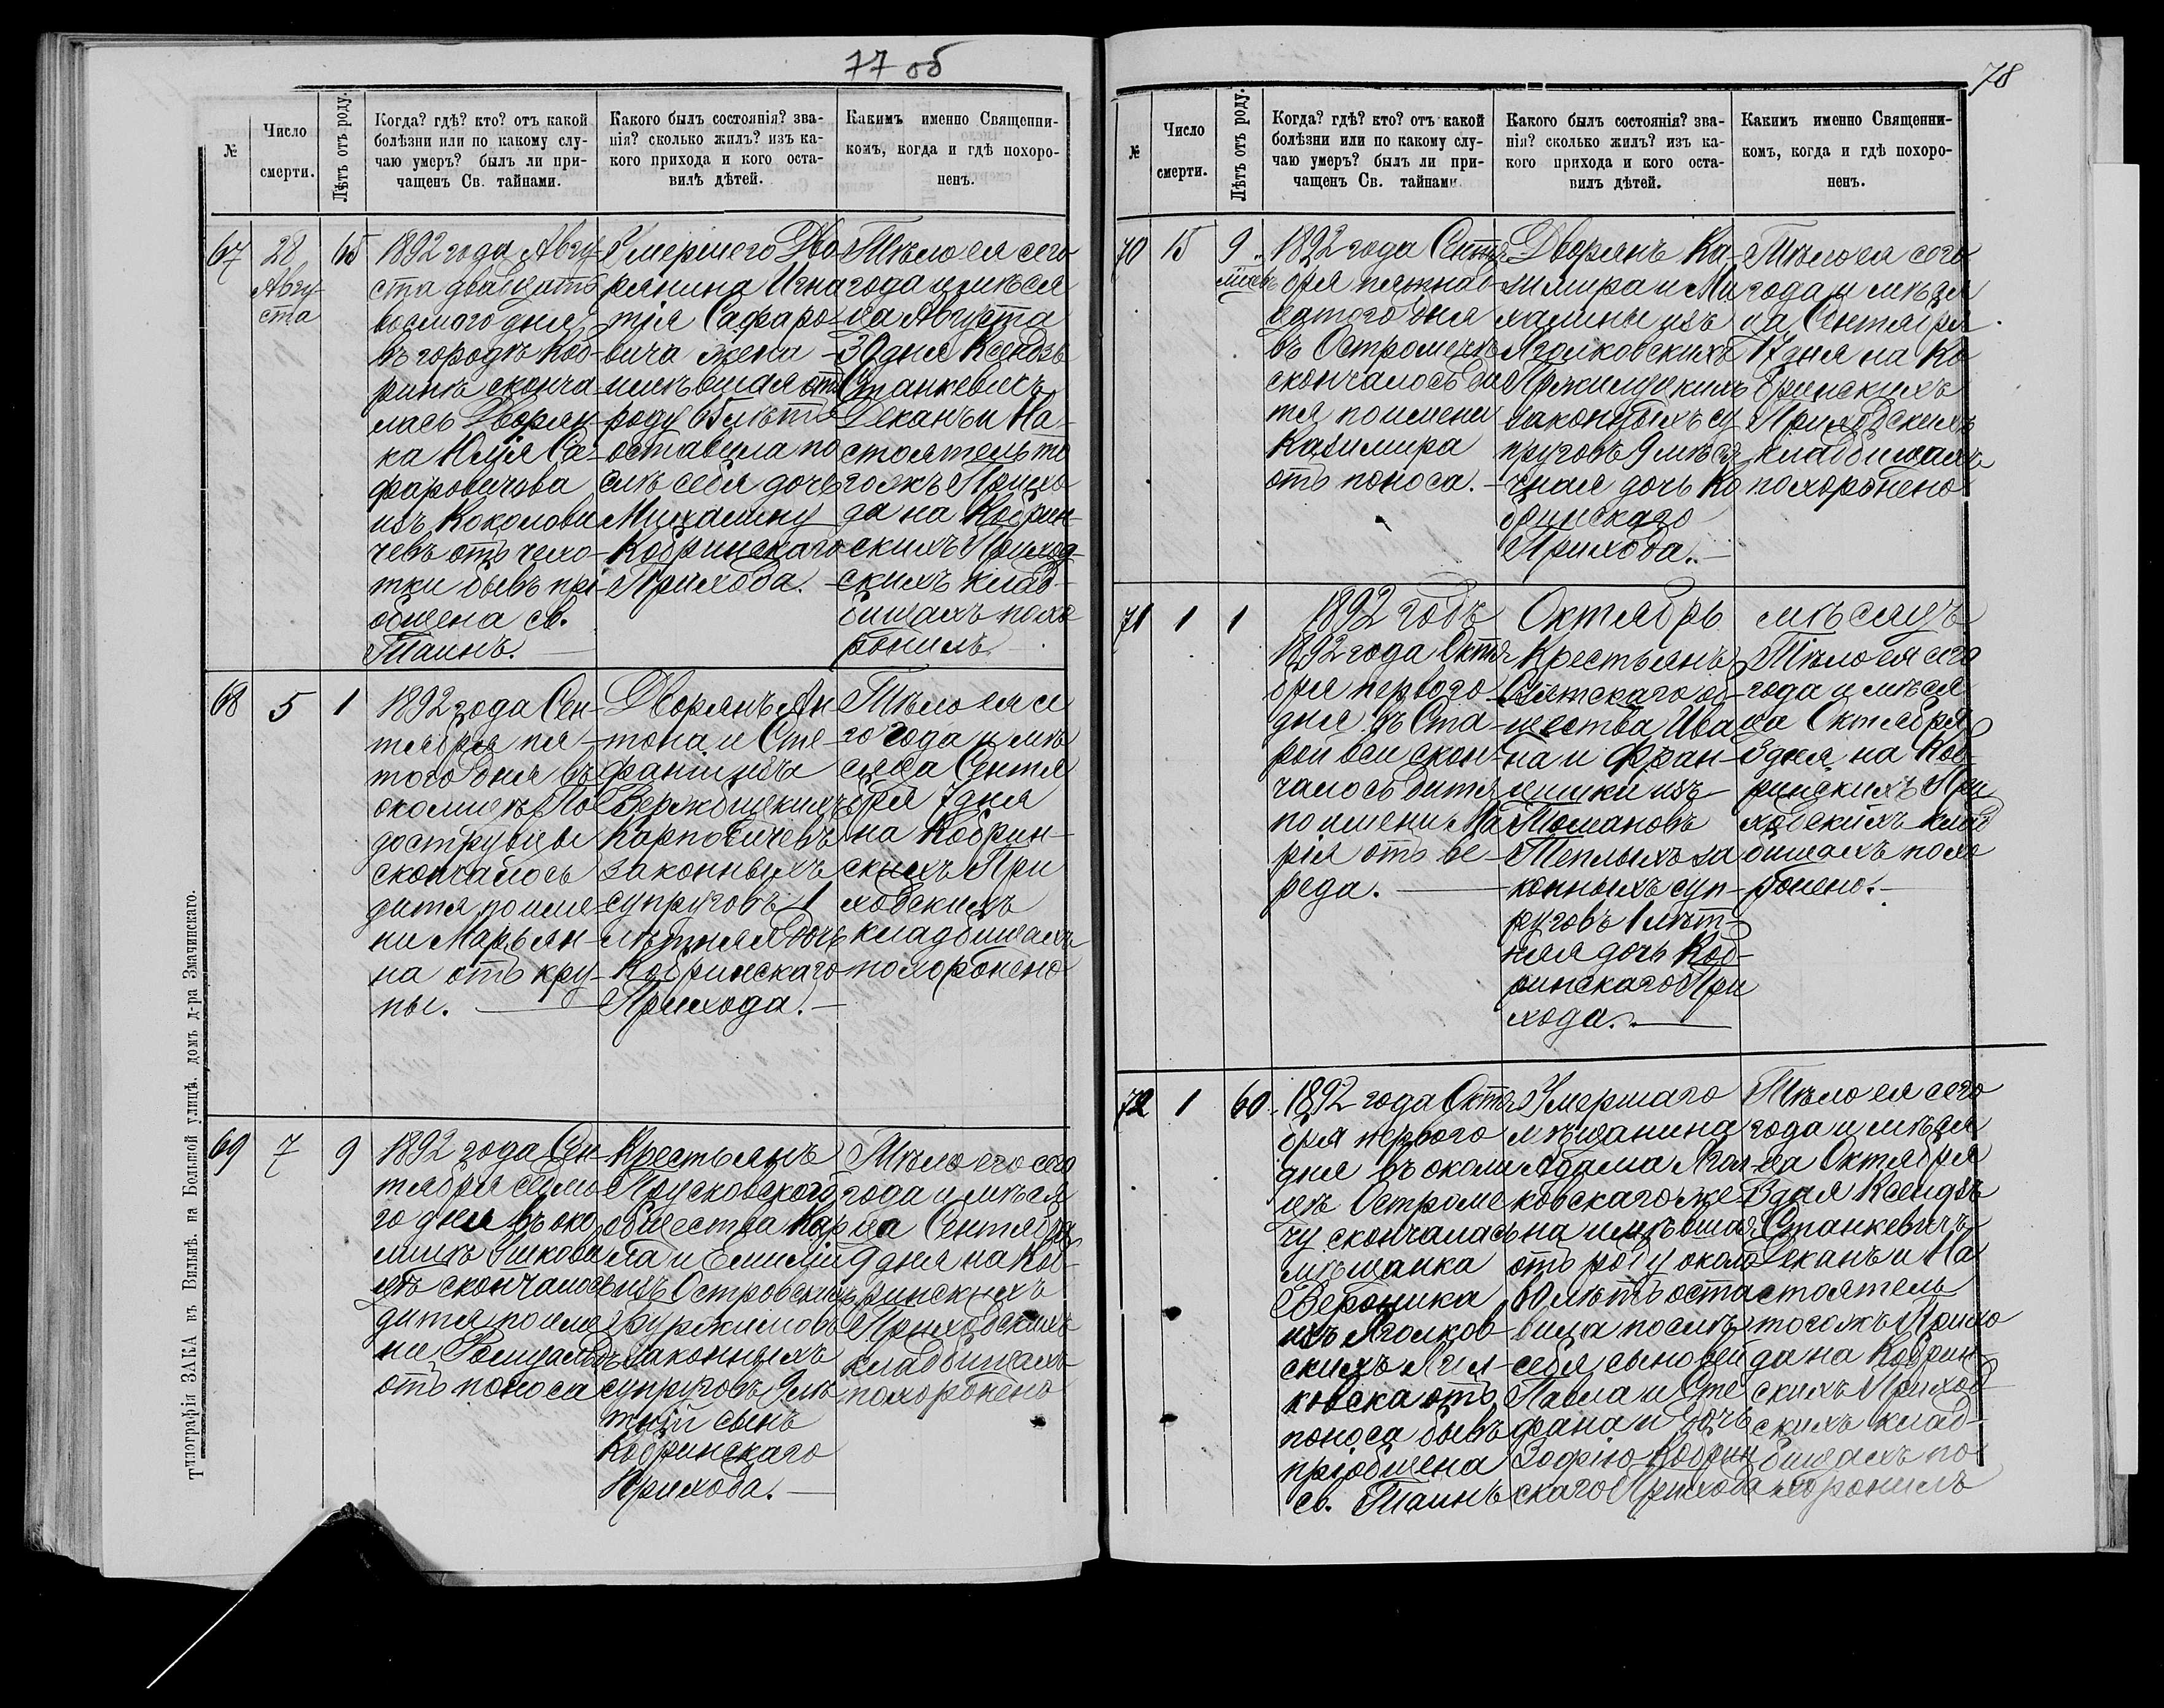 77 об
№
Число
смерти.
Лѣтъ отъ роду.
Когда? гдѣ? кто? отъ какой
болѣзни или по какому слу-
чаю умеръ? былъ ли при-
чащенъ Св. тайнами.
Какого былъ состоянія? зва-
нія? сколько жилъ? изъ ка-
кого прихода и кого оста-
вилъ дѣтей.
Какимъ именно Священни-
комъ, когда и гдѣ похоро-
ненъ.
67
28
Авгу
ста
65
1892 года Авгу-
ста двадцать
восмаго дня
въ городѣ Коб-
ринѣ сконча
лась Дворян-
ка Юлія Са-
фаровичова
изъ Коколови
чевъ отъ чахо-
тки бывъ прі-
общена св.
Таинъ.
Умершего Дво
рянина Игна
тія Сафаро-
вича жена
имѣвшая отъ
роду 65 лѣтъ
оставила по
слѣ себя дочь
Михалину
Кобринскаго
Прихода.
Тѣло ея сего
года и мѣся
ца Августа
30 дня Ксендзъ
Станкевичъ
Деканъ и На-
стоятель то
гожъ Прихо
да на Кобрин-
скихъ Приход-
скихъ клад-
бищахъ похо
ронилъ.
68
5
1
1892 года Сен-
тября пя-
того дня въ
околицѣ По
достружцы
скончалось
дитя по име-
ни Марьян-
на отъ кру-
пы.
Дворянъ Ан
тона и Сте-
фаніи изъ
Вержбицкихъ
Карповичевъ
законныхъ
супруговъ 1
лѣтняя дочь
Кобринскаго
Прихода.
Тѣло ея се
го года и мѣ
сяца Сентя
бря 7 дня
на Кобрин-
скихъ При
ходскихъ
кладбищахъ
похоронено
69
7
9
1892 года Сен-
тября седмо
го дня въ око
лицѣ
скончалось
дитя по име
ни Ромуальдъ
отъ поноса
Крестьянъ
Прусковского
общества Кар
ла и Емиліи
изъ Островскихъ
законныхъ
супруговъ 9 лѣ
тній сынъ
Кобринскаго
Прихода.
Тѣло его сего
года и мѣся
ца Сентября
9 дня на Коб-
ринскихъ
Приходскихъ
кладбищахъ
похоронено
Типографія ЗАКА въ Вильнѣ, на Большой улицѣ, домъ д-ра Змачинскаго.
78
№
Число
смерти.
Лѣтъ отъ роду.
Когда? гдѣ? кто? отъ какой
болѣзни или по какому слу-
чаю умеръ? былъ ли при-
чащенъ Св. тайнами.
Какого былъ состоянія? зва-
нія? сколько жилъ? изъ ка-
кого прихода и кого оста-
вилъ дѣтей.
Какимъ именно Священни-
комъ, когда и гдѣ похоро-
ненъ.
70
15
9
мѣсяц
1892 года Сентя
бря пятнад-
цатого дня
въ Остромечѣ
скончалось ди
тя по имени
Казимира
отъ поноса.
Дворянъ Ка-
зимира и Ми
халины изъ
Ягелковскихъ
законныхъ су
пруговъ 9 мѣся
чная дочь Ко
бринскаго
Прихода.
Тѣло ея сего
года и мѣся
ца Сентября
17 дня на Ко
бринскихъ
Приходскихъ
кладбищахъ
похоронено
71
1
1
1892 годъ Октябрь мѣсяцъ
1892 года Октя
бря первого
дня въ Ста-
рой вси скон-
чалось дитя
по имени Ма
рія отъ ве-
реда.
Крестьянъ
общества Ива
на и Фран-
цишки изъ
Томановъ
Теплыхъ за
конныхъ суп-
руговъ 1 лѣт-
няя дочь Коб-
ринскаго При
хода.
Тѣло ея сего
года и мѣся
ца Октября
3 дня на Коб-
ринскихъ При
ходскихъ клад
бищахъ похо
ронено.
72
1
60
1892 года Октя
бря первого
дня въ околи
цѣ Остроме
чу скончалась
мѣщанка
Вероника
изъ Яголков-
скихъ Ягел-
ковска отъ
поноса бывъ
пріобщена
св. Таинъ
Умершаго
мѣщанина
Адама Ягел-
ковскаго же
на имѣвшая
отъ роду около
60 лѣтъ оста
вила послѣ
себя сыновей
Павла и Сте
фана и дочь
Зофію Кобрин
скаго Прихода
Тѣло ея сего
года и мѣся
ца Октября
3 дня Ксендзъ
Станкевичъ
Деканъ и На
стоятель
тогожъ Прихо
да на Кобрин
скихъ Приход
скихъ клад-
бищахъ по
хоронилъ